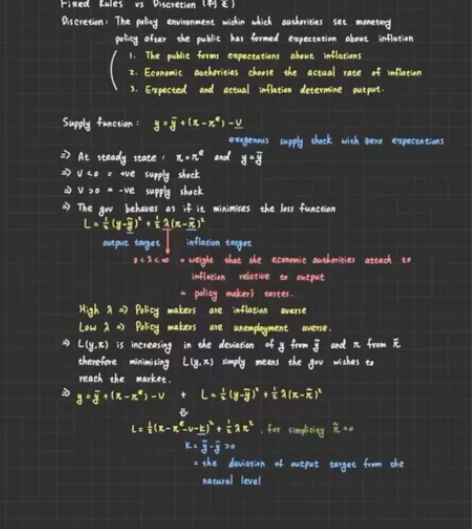 Fixed Rules vs Discretion
Discretion: The policy environment within which authorities set monetary
policy after the public has formed expectations about inflation
1. The public forms expectations about inflations
2. Economic authorities choose the actual rate of inflation
3. Expected and actual inflation determine output.
Supply function: y = ȳ + (π - πᵉ) - υ
exogenous supply shock with zero expectations
⇒ At steady state: π = πᵉ and y = ȳ
⇒ υ < 0 = +ve supply shock
⇒ υ > 0 = -ve supply shock
⇒ The gov behaves as if it minimises the loss function
L = ½(y - ỹ)² + ½λ(π - π̃)²
output target inflation target
0 < λ < ∞ = weight that the economic authorities attach to
inflation relative to output
= policy maker's tastes.
High λ ⇒ Policy makers are inflation averse
Low λ ⇒ Policy makers are unemployment averse.
⇒ L(y,π) is increasing in the deviation of y from ỹ and π from π̃
therefore minimising L(y,π) simply means the gov wishes to
reach the market.
⇒ y = ȳ + (π - πᵉ) - υ + L = ½(y - ỹ)² + ½λ(π - π̃)²
⇓
L = ½(π - πᵉ - υ - k)² + ½λπ², for simplicity π̃ = 0
k = ỹ - ȳ > 0
= the deviation of output target from the
natural level